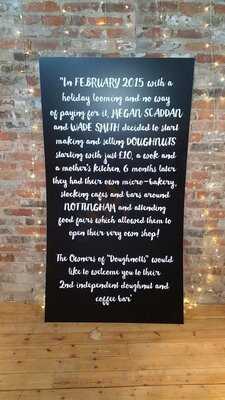 "In FEBRUARY 2015 with a
holiday looming and no way
of paying for it, MEGAN SCADDAN
and WADE SMITH decided to start
making and selling DOUGHNUTS
starting with just £10, a wok and
a mother's kitchen, 6 months later
they had their own micro-bakery,
stocking cafes and bars around
NOTTINGHAM and attending
food fairs which allowed them to
open their very own shop!
The Owners of "Doughnotts" would
like to welcome you to their
2nd independent doughnut and
coffee bar"